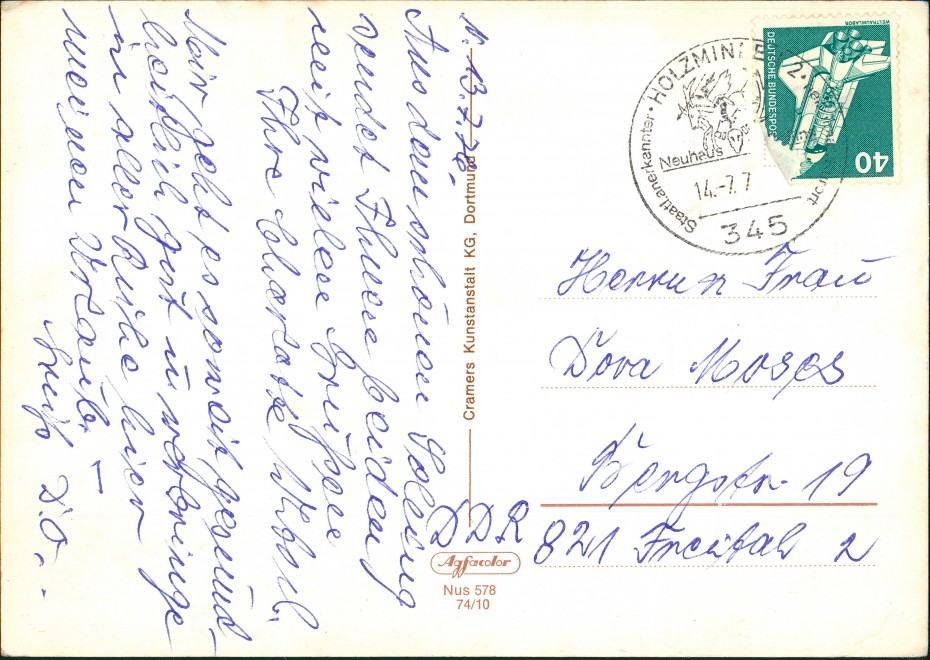 d. 13.7.76.
Aus dem schönen Solling
sendet Ihnen beiden
recht viele Grüsse
Ihre Charlotte
Mir geht es soweit gesund-
heitlich gut u. verbringe
in aller Ruhe hier
meinen Urlaub. –
Gruß D.O.
Cramers Kunstanstalt KG, Dortmund
Agfacolor
Nus 578
74/10
HOLZMINDEN 2
Neuhaus
14.-7.7
345
Staatl. anerkannter
ort
DEUTSCHE BUNDESPOST
WELTRAUMLABOR
40
Herrn u Frau
Dora Moses
Bergstr. 19
DDR 821 Freital 2